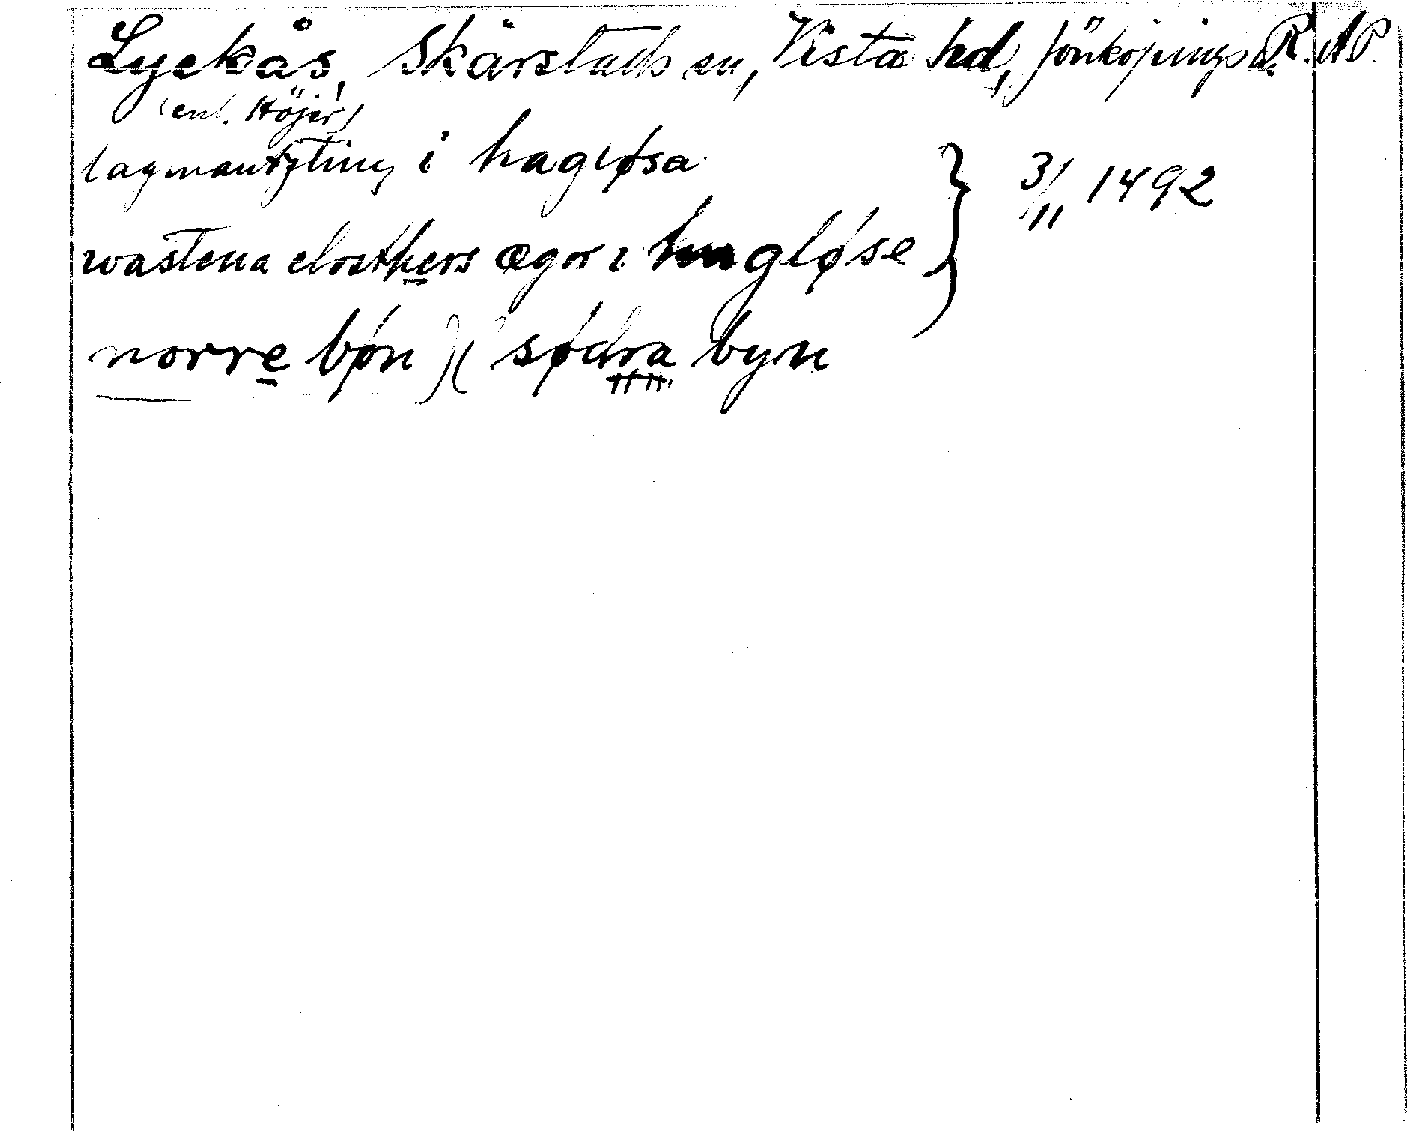 Lyckås, Skärstads sn, Vista hd, Jönköpings l. R.A.P.
(enl. Höjer)
lagmantzting i hagløsa
wastena closthers ægor i hagløse } 3/11 1492
norre bøn )( sødra byn